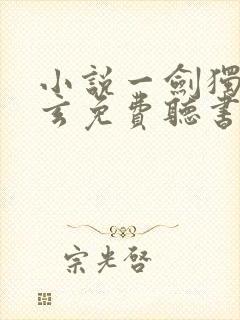 小說一劍獨
玄免費聽書
宗光啓